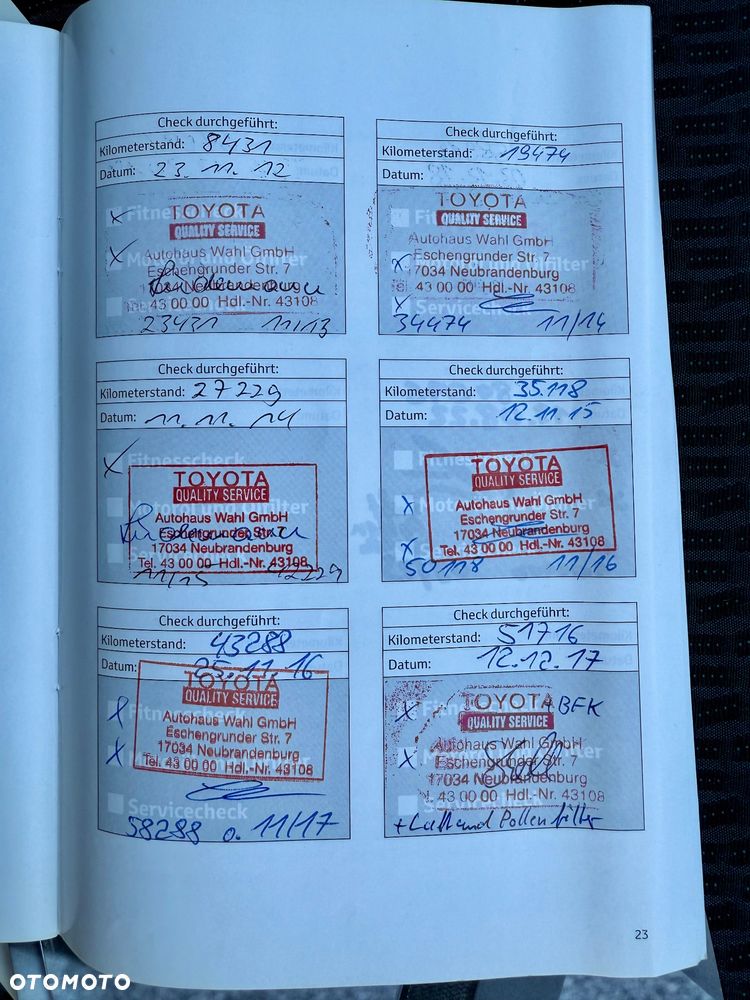 Check durchgeführt:
Kilometerstand: 8431
Datum: 23.11.12
Fitnesscheck
TOYOTA
QUALITY SERVICE
Autohaus Wahl GmbH
Eschengrunder Str. 7
17034 Neubrandenburg
Tel. 43 00 00 Hdl.-Nr. 43108
23431 11/13
Check durchgeführt:
Kilometerstand: 19474
Datum:
TOYOTA
QUALITY SERVICE
Autohaus Wahl GmbH
Eschengrunder Str. 7
17034 Neubrandenburg
Tel. 43 00 00 Hdl.-Nr. 43108
34474 11/14
Check durchgeführt:
Kilometerstand: 27229
Datum: 11.11.14
Fitnesscheck
TOYOTA
QUALITY SERVICE
Motoröl und Ölfilter
Autohaus Wahl GmbH
Eschengrunder Str. 7
17034 Neubrandenburg
Tel. 43 00 00 Hdl.-Nr. 43108
11/15 42229
Check durchgeführt:
Kilometerstand: 35.118
Datum: 12.11.15
Fitnesscheck
TOYOTA
QUALITY SERVICE
Autohaus Wahl GmbH
Eschengrunder Str. 7
17034 Neubrandenburg
Tel. 43 00 00 Hdl.-Nr. 43108
50118 11/16
Check durchgeführt:
Kilometerstand: 43288
Datum: 25.11.16
TOYOTA
QUALITY SERVICE
Fitnesscheck
Autohaus Wahl GmbH
Eschengrunder Str. 7
17034 Neubrandenburg
Tel. 43 00 00 Hdl.-Nr. 43108
Servicecheck
58288 o. 11/17
Check durchgeführt:
Kilometerstand: 51716
Datum: 12.12.17
TOYOTA + BFK
QUALITY SERVICE
Autohaus Wahl GmbH
Eschengrunder Str. 7
17034 Neubrandenburg
Tel. 43 00 00 Hdl.-Nr. 43108
+ Luft und Pollenfilter
23
OTOMOTO